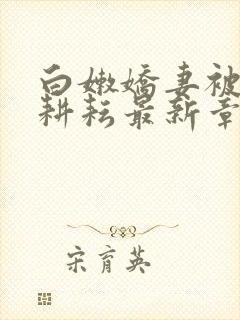 白嫩嬌妻被
耕耘最新章
宋育英